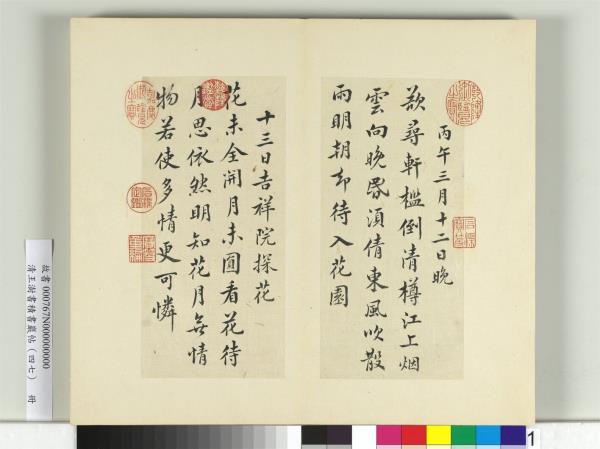 丙午三月十二日晚
欲尋軒檻倒清樽江上烟
雲向晚昬須倩東風吹散
雨明朝却待入花園
十三日吉祥院探花
花未全開月未圓看花待
月思依然明知花月無情
物若使多情更可憐
故書000767N000000000
清王澍書積書巖帖(四七) 冊
1